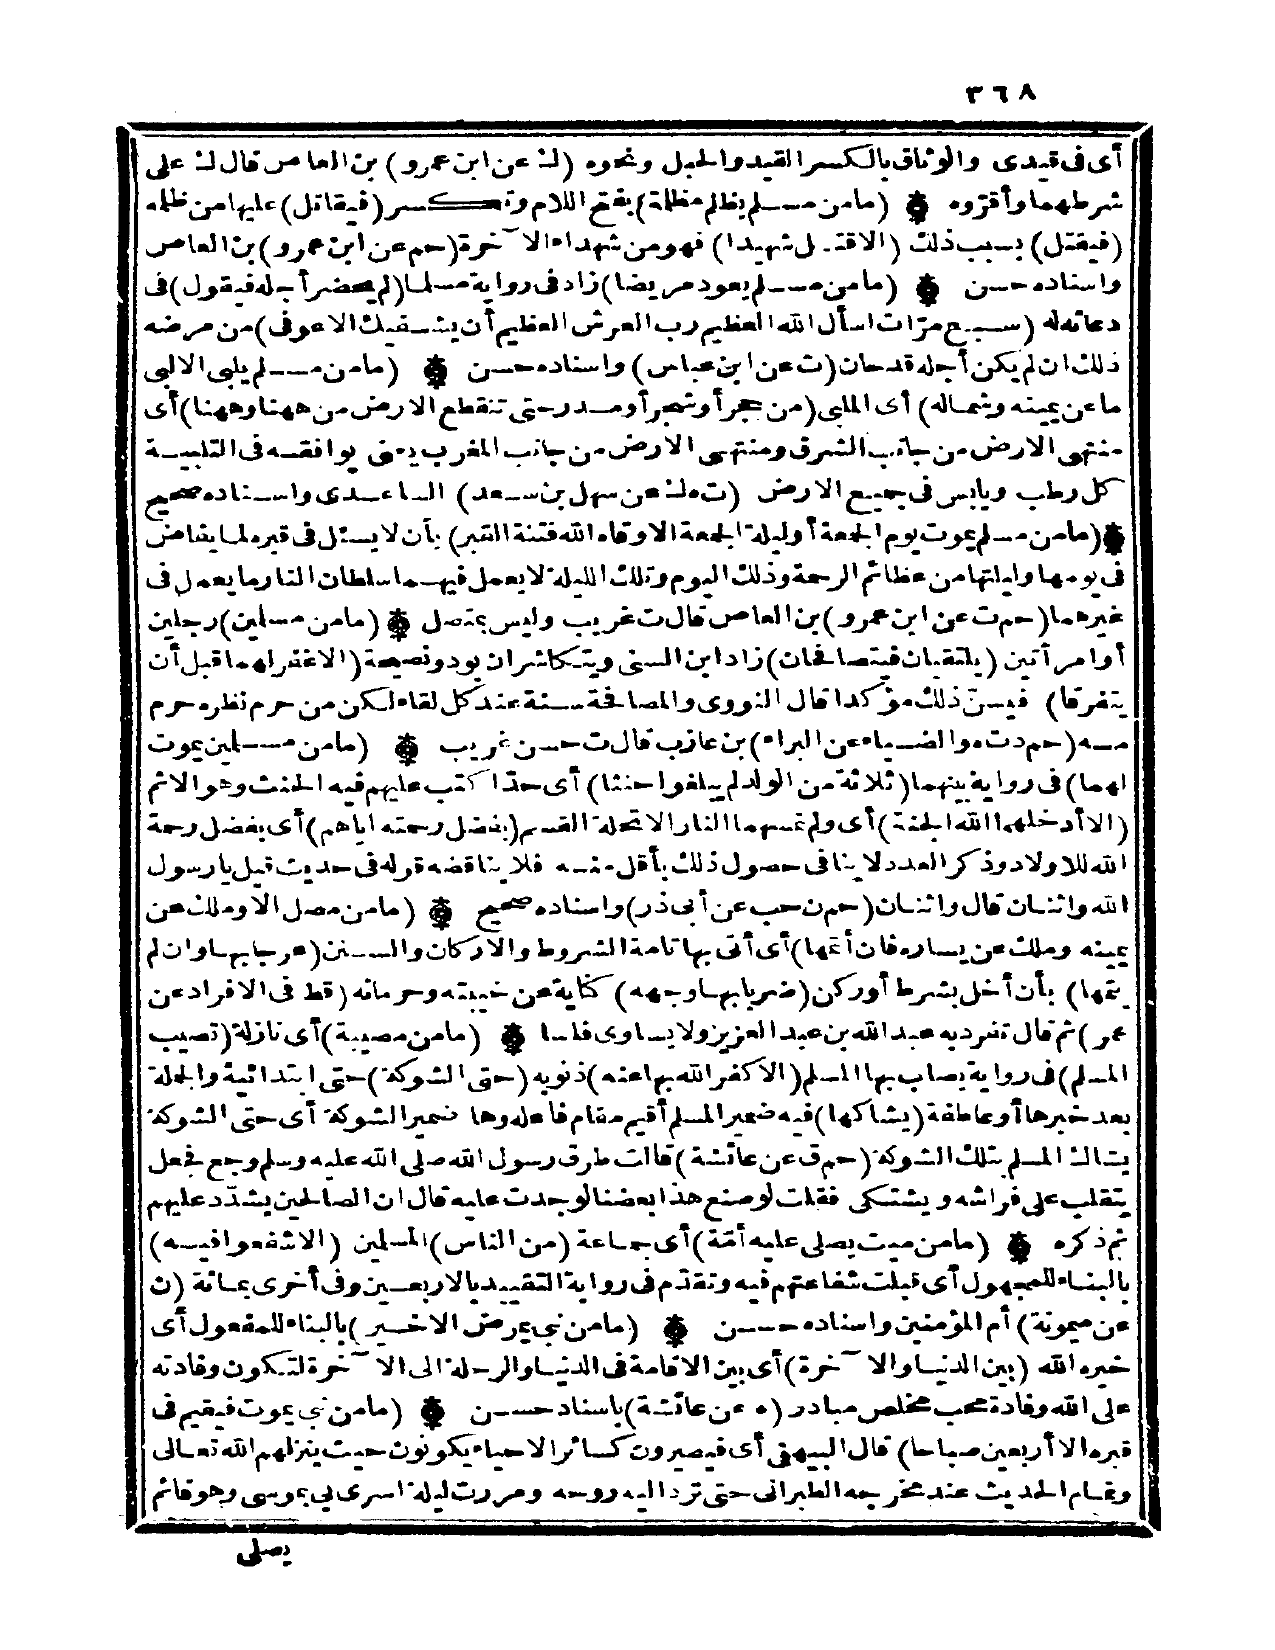 ٣٦٨
أى فى قيدى والوثاق بالكسر القيد والحبل ونحوه (ك عن ابن عمرو) بن العاص قال ك على
شرطهما وأقروه ۞ (ما من مسلم يظلم مظلمة) بفتح اللام وتكسر (فيقاتل) عليها من ظلمه
(فيقتل) بسبب ذلك (الا قتل شهيدا) فهو من شهداء الآخرة (حم عن ابن عمرو) بن العاص
واسناده حسن ۞ (ما من مسلم يعود مريضا) زاد فى رواية مسلما (لم يحضر أجله فيقول) فى
دعائه له (سبع مرّات اسأل الله العظيم رب العرش العظيم أن يشفيك الا عوفى) من مرضه
ذلك ان لم يكن أجله قد حان (ت عن ابن عباس) واسناده حسن ۞ (ما من مسلم يلبى الا لبى
ما عن يمينه وشماله) أى الملبى (من حجر أو شجر أو مدر حتى تنقطع الارض من ههنا وههنا) أى
منتهى الارض من جانب الشرق ومنتهى الارض من جانب المغرب يعنى يوافقه فى التلبية
كل رطب ويابس فى جميع الارض (ت ه ك عن سهل بن سعد) الساعدى واسناده صحيح
۞ (ما من مسلم يموت يوم الجمعة أو ليلة الجمعة الا وقاه الله فتنة القبر) بأن لا يسئل فى قبره لما يفاض
فى يومها وليلتها من عظائم الرحمة وذلك اليوم وتلك الليلة لا يعمل فيهما سلطان النار ما يعمل فى
غيرهما (حم ت عن ابن عمرو) بن العاص قال ت غريب وليس بمتصل ۞ (ما من مسلمين) رجلين
أو امرأتين (يلتقيان فيتصافحان) زاد ابن السنى ويتكاشران بود ونصيحة (الا غفر لهما قبل أن
يتفرقا) فيسنّ ذلك مؤكدا قال النووى والمصافحة سنة عند كل لقاء لكن من حرم نظره حرم
مسه (حم د ت ه والضياء عن البراء) بن عازب قال ت حسن غريب ۞ (ما من مسلمين يموت
لهما) فى رواية بينهما (ثلاثة من الولد لم يبلغوا حنثا) أى حدا كتب عليهم فيه الحنث وهو الاثم
(الا أدخلهما الله الجنة) أى ولم تمسهما النار الا تحلة القسم (بفضل رحمته اياهم) أى بفضل رحمة
الله للاولاد وذكر العدد لا ينافى حصول ذلك بأقل منه فلا يناقضه قوله فى حديث قيل يا رسول
الله واثنان قال واثنان (حم ن حب عن أبى ذر) واسناده صحيح ۞ (ما من مصل الا وملك عن
يمينه وملك عن يساره فان أتمها) أى أتى بها تامة الشروط والاركان والسنن (عرجا بها وان لم
يتمها) بأن أخل بشرط أو ركن (ضربا بها وجهه) كناية عن خيبته وحرمانه (قط فى الافراد عن
عمر) ثم قال تفرد به عبد الله بن عبد العزيز ولا يساوى فلسا ۞ (ما من مصيبة) أى نازلة (تصيب
المسلم) فى رواية يصاب بها المسلم (الا كفر الله بها عنه) ذنوبه (حتى الشوكة) حتى ابتدائية والجملة
بعد خبرها أو عاطفة (يشاكها) فيه ضمير المسلم أقيم مقام فاعله وها ضمير الشوكة أى حتى الشوكة
يشاك المسلم بتلك الشوكة (حم ق عن عائشة) قالت طرق رسول الله صلى الله عليه وسلم وجع فجعل
يتقلب على فراشه ويشتكى فقلت لو صنع هذا بعضنا لوجدت عليه قال ان الصالحين يشدّد عليهم
ثم ذكره ۞ (ما من ميت يصلى عليه أمّة) أى جماعة (من الناس) المسلمين (الا شفعوا فيه)
بالبناء للمجهول أى قبلت شفاعتهم فيه وتقدّم فى رواية التقييد بالاربعين وفى أخرى بمائة (ن
عن ميمونة) أم المؤمنين واسناده حسن ۞ (ما من نبى يمرض الا خير) بالبناء للمفعول أى
خيره الله (بين الدنيا والآخرة) أى بين الاقامة فى الدنيا والرحلة الى الآخرة لتكون وفادته
على الله وفادة محب مخلص مبادر (ه عن عائشة) باسناد حسن ۞ (ما من نبى يموت فيقيم فى
قبره الا أربعين صباحا) قال البيهقى أى فيصيرون كسائر الاحياء يكونون حيث ينزلهم الله تعالى
وتمام الحديث عند مخرجه الطبرانى حتى ترد اليه روحه ومررت ليلة اسرى بى بموسى وهو قائم
يصلى